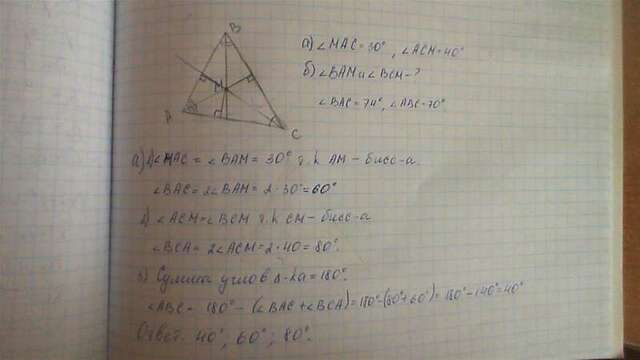 B
M
A
C
а) ∠MAC = 30°, ∠ACM = 40°
б) ∠BAM и ∠BCM - ?
∠BAC = 74°, ∠ABC = 70°
а) 1) ∠MAC = ∠BAM = 30° т.к AM – бисс-а.
∠BAC = 2∠BAM = 2·30° = 60°
2) ∠ACM = ∠BCM т.к CM – бисс-а
∠BCA = 2∠ACM = 2·40 = 80°.
3) Сумма углов Δ-ка = 180°.
∠ABC = 180° - (∠BAC + ∠BCA) = 180° - (80° + 60°) = 180° - 140° = 40°
Ответ. 40°; 60°; 80°.